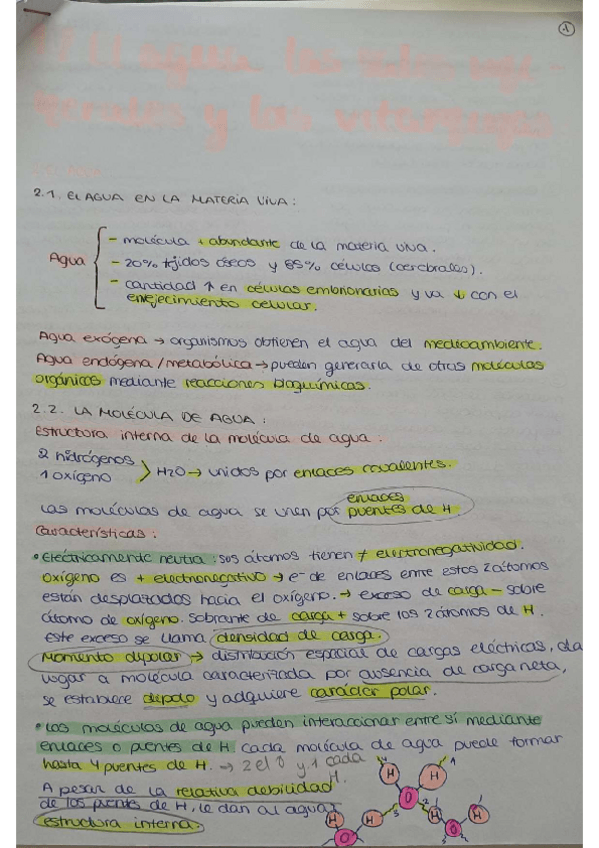 1
El agua, las sales mi-
nerales y las vitaminas
2.1. EL AGUA EN LA MATERIA VIVA:
Agua
- molécula + abundante de la materia viva.
- 20% tejidos óseos y 85% células (cerebrales).
- cantidad ↑ en células embrionarias y va ↓ con el
envejecimiento celular.
Agua exógena → organismos obtienen el agua del medioambiente.
Agua endógena/metabólica → pueden generarla de otras moléculas
orgánicas mediante reacciones bioquímicas.
2.2. LA MOLÉCULA DE AGUA:
Estructura interna de la molécula de agua.
2 hidrógenos
1 oxígeno
H2O → unidos por enlaces covalentes.
Las moléculas de agua se unen por enlaces
puentes de H.
Características:
• Eléctricamente neutra: sus átomos tienen ≠ electronegatividad.
Oxígeno es + electronegativo → e- de enlaces entre estos 2 átomos
están desplazados hacia el oxígeno. → exceso de carga - sobre
átomo de oxígeno. Sobrante de carga + sobre los 2 átomos de H.
Este exceso se llama densidad de carga.
Momento dipolar → distribución espacial de cargas eléctricas, da
lugar a molécula caracterizada por ausencia de carga neta,
se establece dipolo y adquiere carácter polar.
• Las moléculas de agua pueden interaccionar entre sí mediante
enlaces o puentes de H. Cada molécula de agua puede formar
hasta 4 puentes de H. → 2 el O y 1 cada
H.
A pesar de la relativa debilidad
de los puentes de H, le dan al agua
estructura interna.
H H 1
O 2
3 H
H H
O O